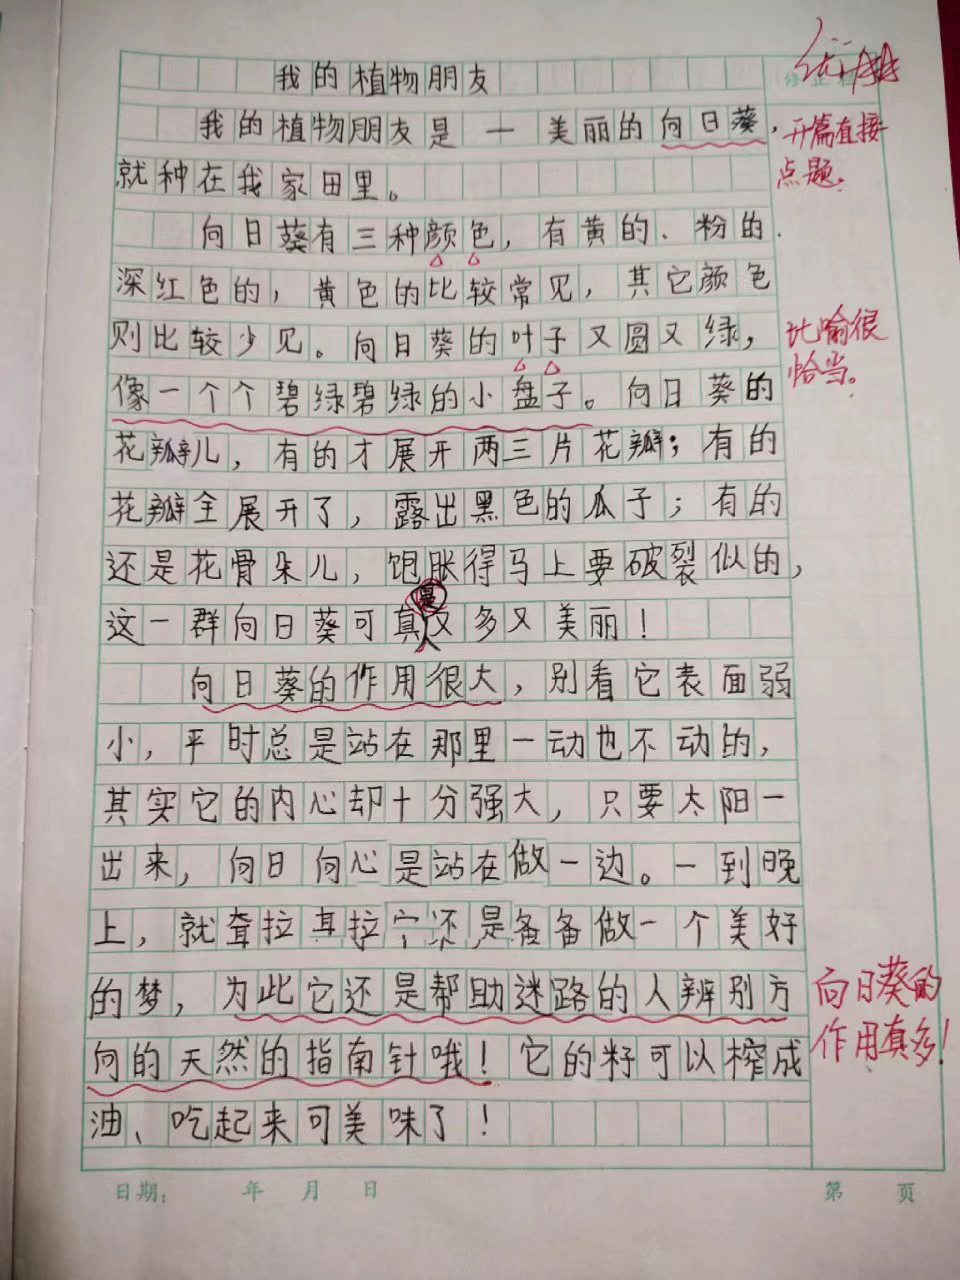 我的植物朋友
我的植物朋友是一美丽的向日葵，
开篇直接
点题。
就种在我家田里。
向日葵有三种颜色，有黄的、粉的.
深红色的，黄色的比较常见，其它颜色
则比较少见。向日葵的叶子又圆又绿，
比喻很
恰当。
像一个个碧绿碧绿的小盘子。向日葵的
花瓣儿，有的才展开两三片花瓣；有的
花瓣全展开了，露出黑色的瓜子；有的
还是花骨朵儿，饱胀得马上要破裂似的，
是
这一群向日葵可真又多又美丽！
向日葵的作用很大，别看它表面弱
小，平时总是站在那里一动也不动的，
其实它的内心却十分强大，只要太阳一
出来，向日向心是站在做一边。一到晚
上，就耷拉耳拉还是备备做一个美好
的梦，为此它还是帮助迷路的人辨别方
向的天然的指南针哦！它的籽可以榨成
向日葵的
作用真多！
油、吃起来可美味了！
日期： 年 月 日
第 页